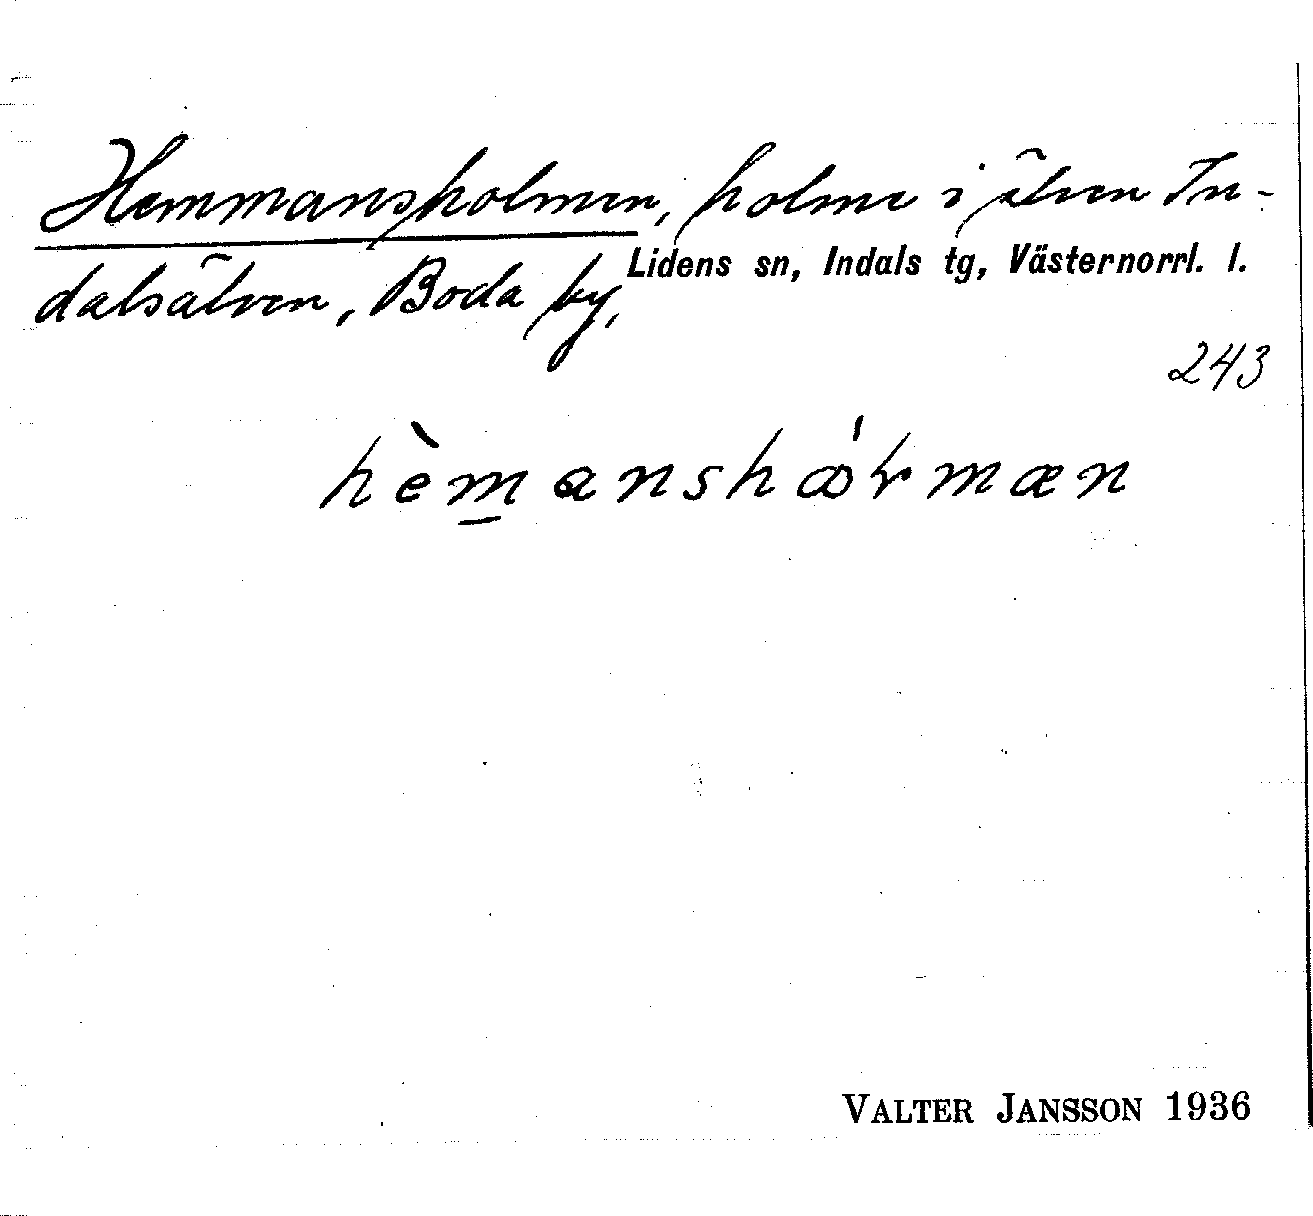 Hemmansholmen, holme i älven In-
dalsälven, Boda by, Lidens sn, Indals tg, Västernorrl. l.
243
hèmansh
VALTER JANSSON 1936